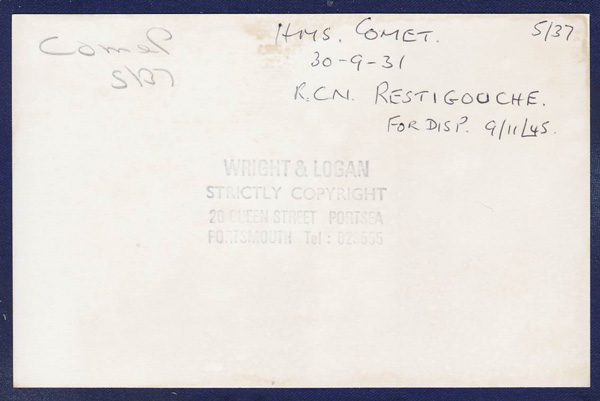 Comet
5/37
HMS. COMET. 5/37
30-9-31
R.C.N. RESTIGOUCHE.
FOR DISP. 9/11/45.
WRIGHT & LOGAN
STRICTLY COPYRIGHT
QUEEN STREET PORTSEA
PORTSMOUTH Tel: